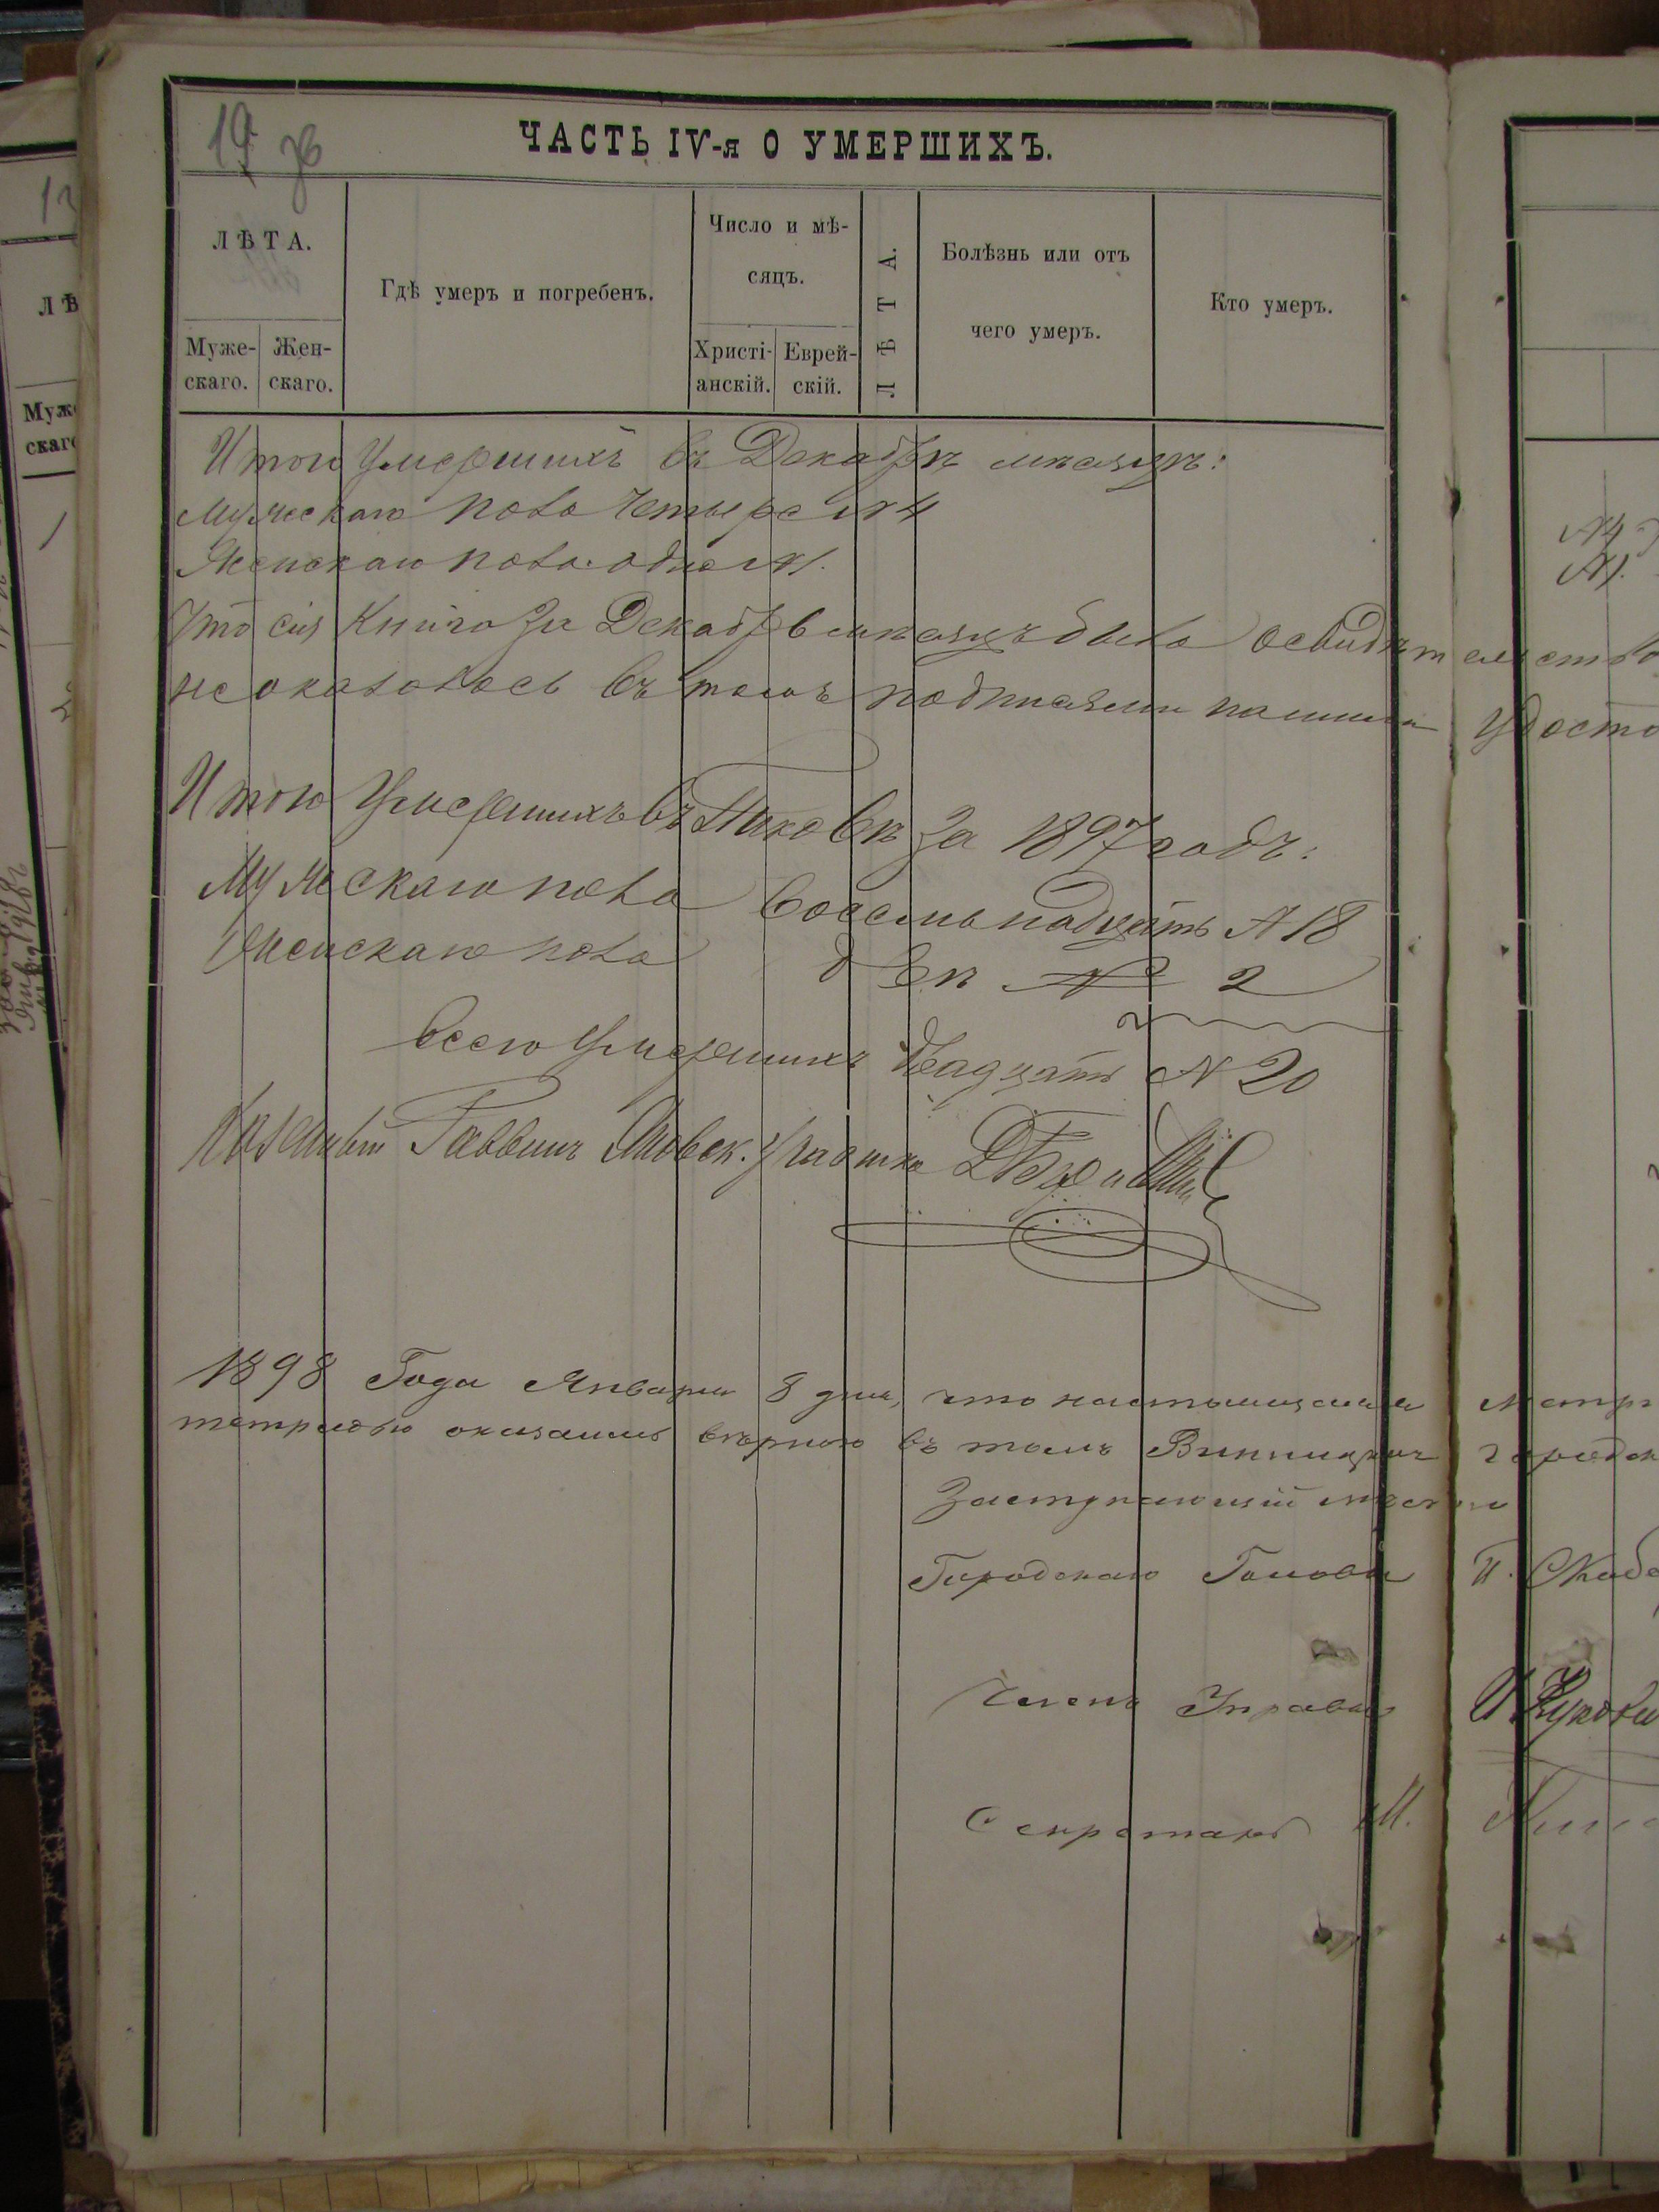 19 зв
ЧАСТЬ IV-я О УМЕРШИХЪ.
ЛѢТА.
Муже-
скаго.
Жен-
скаго.
Гдѣ умеръ и погребенъ.
Число и мѣ-
сяцъ.
Христі-
анскій.
Еврей-
скій.
ЛѢТА.
Болѣзнь или отъ
чего умеръ.
Кто умеръ.
Итого Умершихъ въ Декабрѣ мѣсяцѣ:
Мужескаго пола Четыре № 4
Женскаго пола одна №1.
Что сія Книга За Декабрь мѣсяцъ была освидѣтельство
не оказалось въ томъ подписями нашими Удосто
Итого Умершихъ въ Пиковѣ За 1897 годъ:
Мужескаго пола Восемьнадцать № 18
Женскаго пола двѣ № 2
Всего Умершихъ двадцать № 20
Казенный Раввинъ Яновск. Участка
1898 Года Января 8 дня, что настоящая метри
тетрадью оказались вѣрною въ томъ Винницкая городск
Заступающій мѣсто
Городскаго Головы П.
Членъ Управы
Секретарь М.
№4
№1.
13
ЛѢ
Муже
скаго